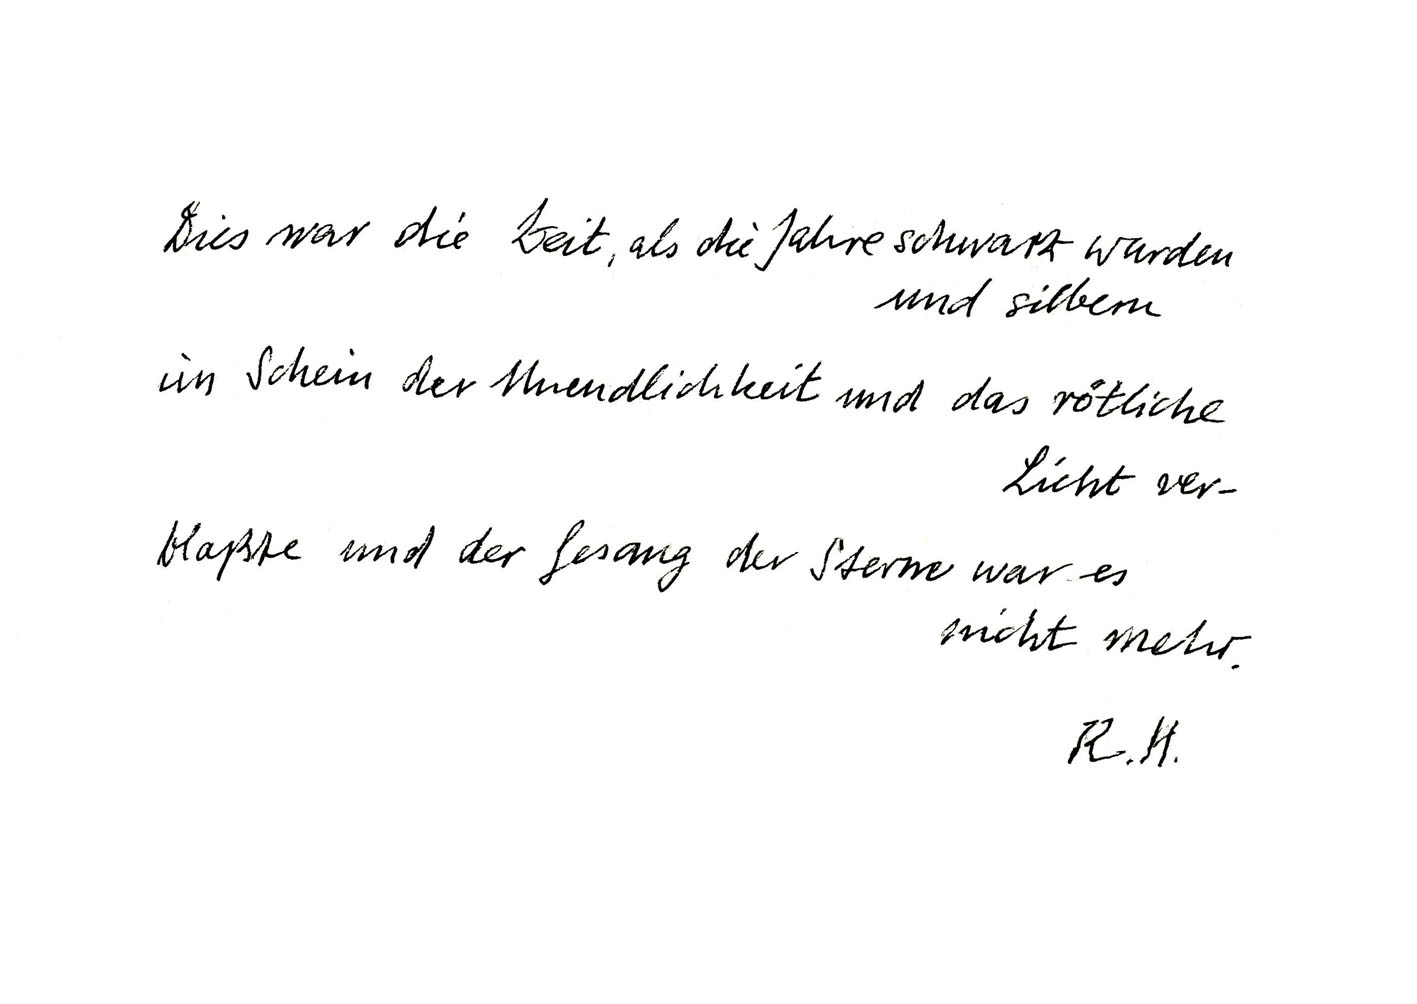 Dies war die Zeit, als die Jahre schwarz wurden
und silbern
im Schein der Unendlichkeit und das rötliche
Licht ver-
blaßte und der Gesang der Sterne war es
nicht mehr.
R.H.